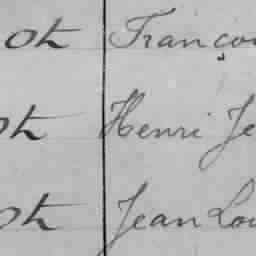 Oth Françoi
Oth Henri Je
Oth Jean Lou